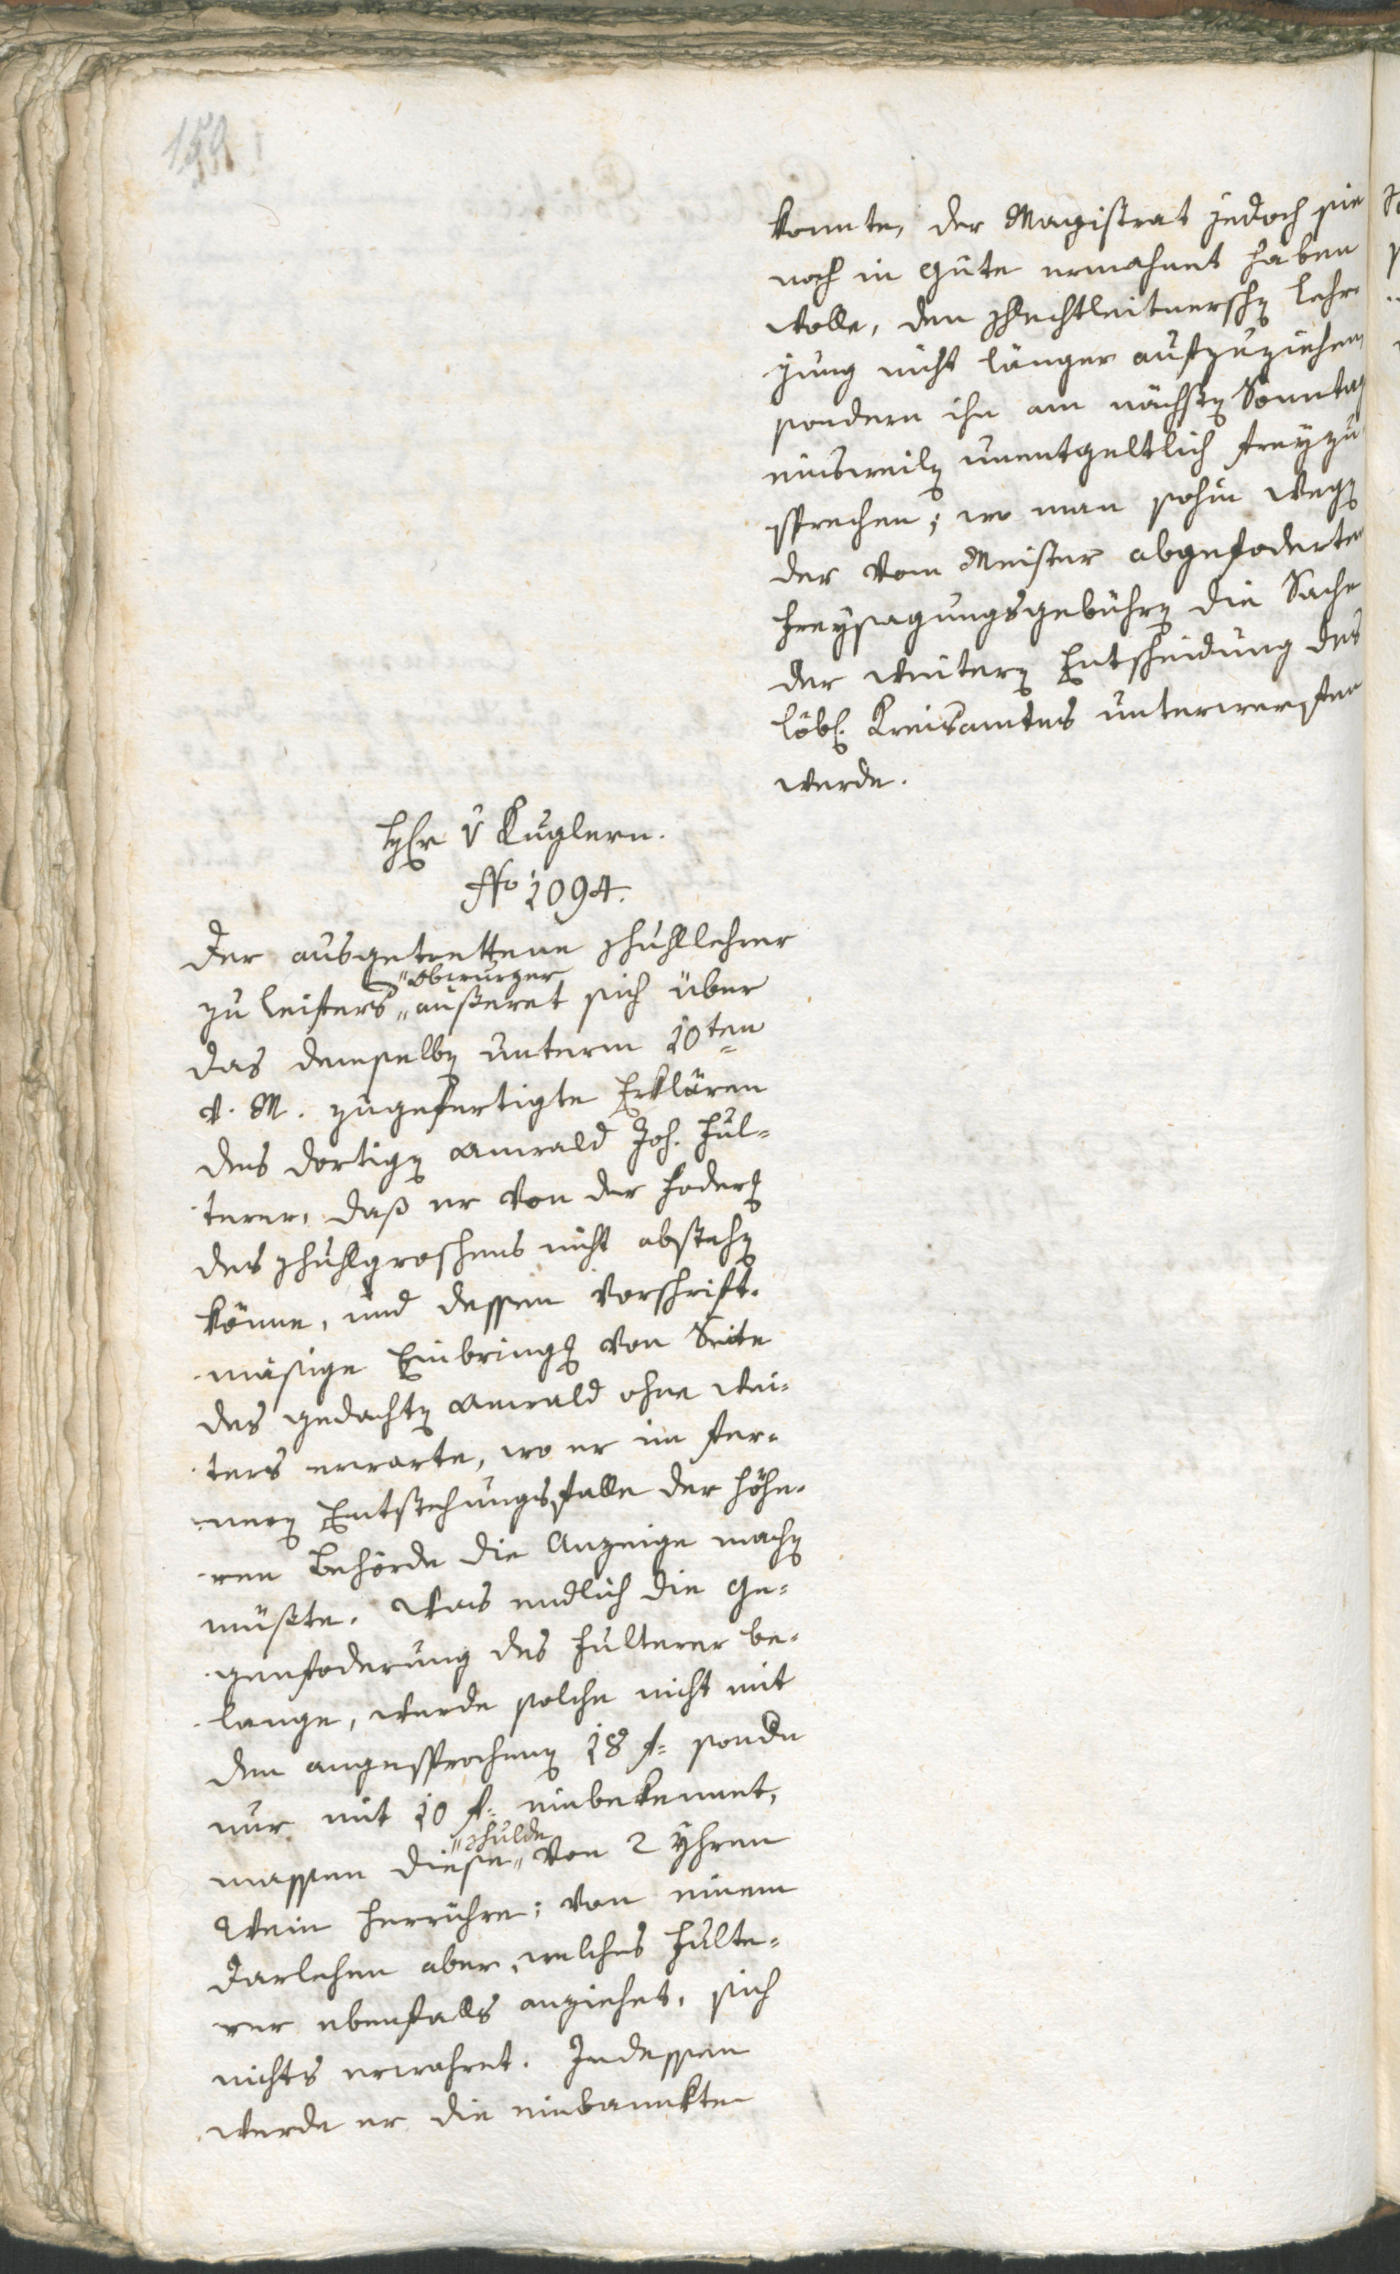 159
konnte, der Magistrat jedoch sie
noch in Güte ermahnet haben
wolle, den Schlechtleitnersch. Lehr-
jung nicht länger aufzuziehen
sondern ihn am nächst. Sonntag
einsweil. unentgeltlich freyzu
sprechen; wo man sohin weg.
der vom Meister abgefoderten
Freysagungsgebühr. die Sache
der weiter. Entscheidung des
löbl. Kreisamtes unterwerffen
werde.
H. v Kuglern.
No 1094.
Der ausgetrettene Schullehrer
zu Leifers „Obwurzer
äußeret sich über
das demselb. unterm 10ten
d. M. zugefertigte Erklären
des dortig. Anwald Joh. Ful-
terer, daß er von der Foder.
des Schulgroschens nicht absteh.
könne, und dessen vorschrift-
mäsige Einbring. von Seite
des gedacht. Anwald ohne wei-
ters erwarte, wo er im fer-
ner. Entstehungsfalle der höhe-
ren Behörde die Anzeige mach.
müßte. Was endlich die Ge-
genfoderung des Fulterer be-
lange, werde solche nicht mit
den angesprochen. 18 f. sonde
nur mit 10 f. einbekennet,
massen diese „Schulde von 2 Yhren
Wein herrühre; von einem
Darlehen aber, welches Fulte-
rer ebenfalls anziehet, sich
nichts erwahret. Indessen
werde er die einbannkte